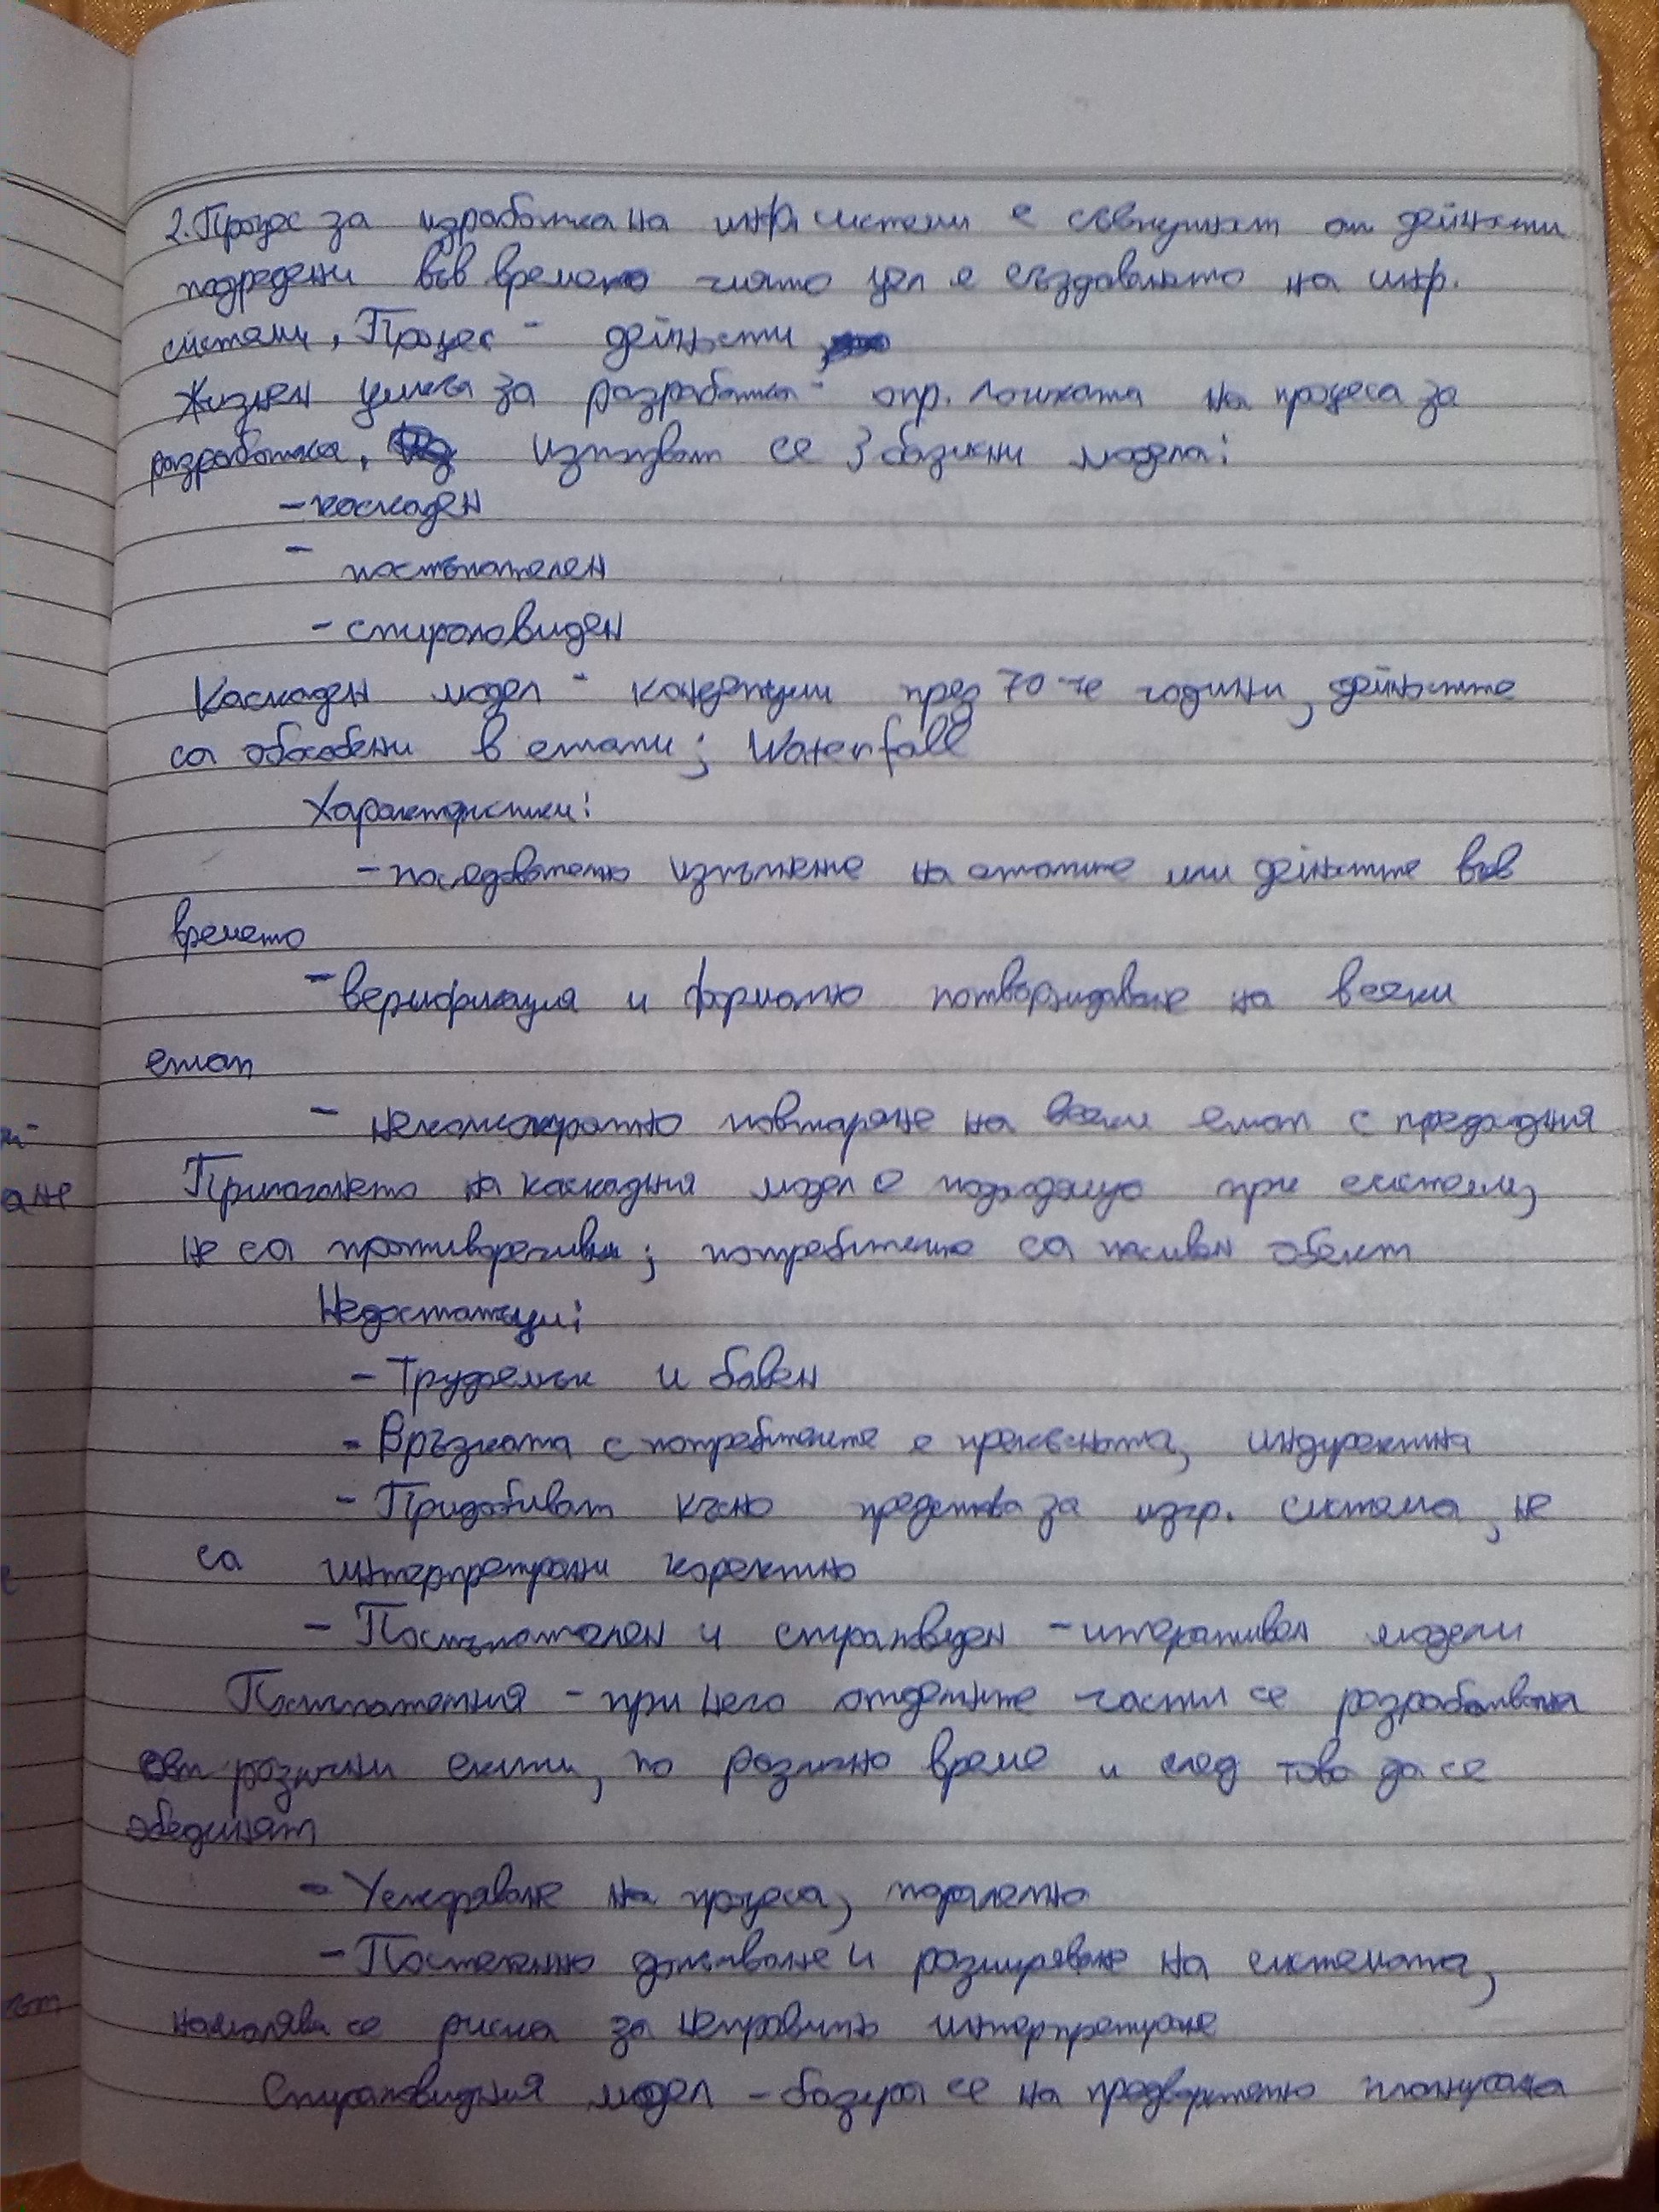 2. Процес за изработка на инф. системи е съвкупност от дейности
подредени във времето чиято цел е създаването на инф.
системи, Процес - дейности
Жизнен цикъл за разработка - опр. логиката на процеса за
разработка, използват се 3 базисни модела:
- каскаден
- постъпателен
- спираловиден
Каскаден модел - концепции през 70-те години, дейностите
са обособени в етапи; Waterfall
Характеристики:
- последователно изпълнение на етапите или дейностите във
времето
- верификация и формално потвърждаване на всеки
етап
- неколкократно повтаряне на всеки етап с предходния
Прилагането на каскадния модел е подходящо при системи,
не са противоречиви; потребителите са пасивен обект
Недостатъци:
- Трудоемък и бавен
- Връзката с потребителите е прекъсната, индиректна
- Придобиват късно представа за изгр. система, не
са интерпретирани коректно
- Постъпателен и спираловиден - итеративен модели
Постъпателния - при него отделните части се разработват
от различни екипи, по различно време и след това да се
обединят
- Ускоряване на процеса, паралелно
- Постепенно допълване и разширяване на системата,
намалява се риска за неправилно интерпретиране
Спираловидния модел - базира се на предварително планирана